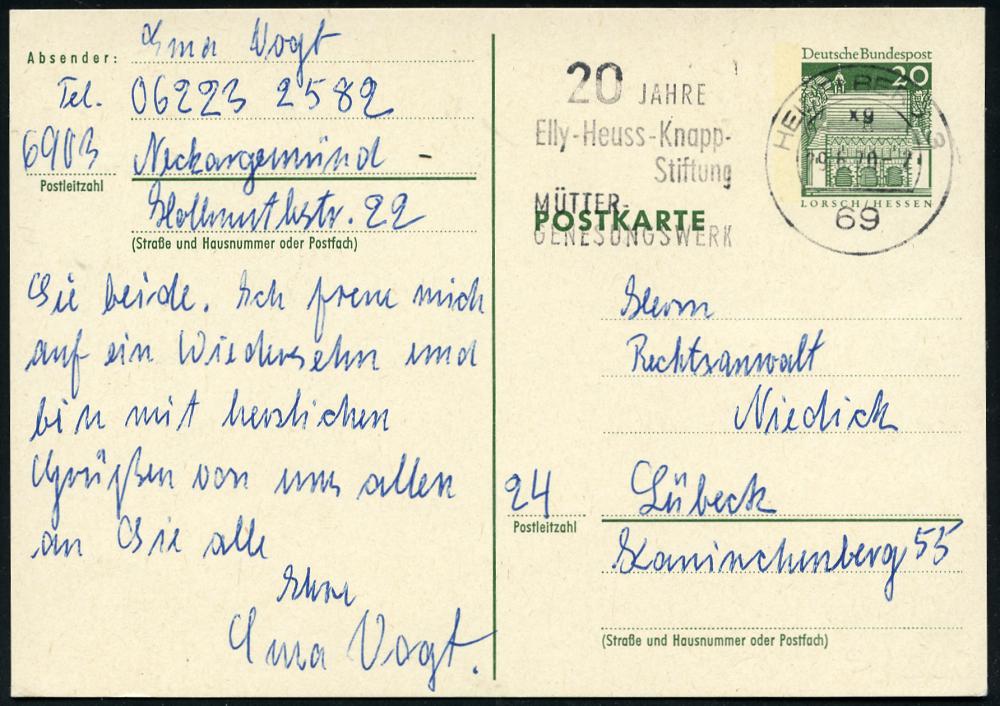 Absender:
Vogt
Tel. 06223 2582
6903 Neckargemünd -
Postleitzahl
Hollmuthstr. 22
(Straße und Hausnummer oder Postfach)
Sie beide. Ich freue mich
auf ein Wiedersehn und
bin mit herzlichen
Grüßen von uns allen
an Sie alle
Ihre
Vogt.
20 JAHRE
Elly-Heuss-Knapp-
Stiftung
MÜTTER-
GENESUNGSWERK
POSTKARTE
Deutsche Bundespost
20
LORSCH/HESSEN
xg
69
Herrn
Rechtsanwalt
Niedick
24 Lübeck
Postleitzahl
Kaninchenberg 55
(Straße und Hausnummer oder Postfach)